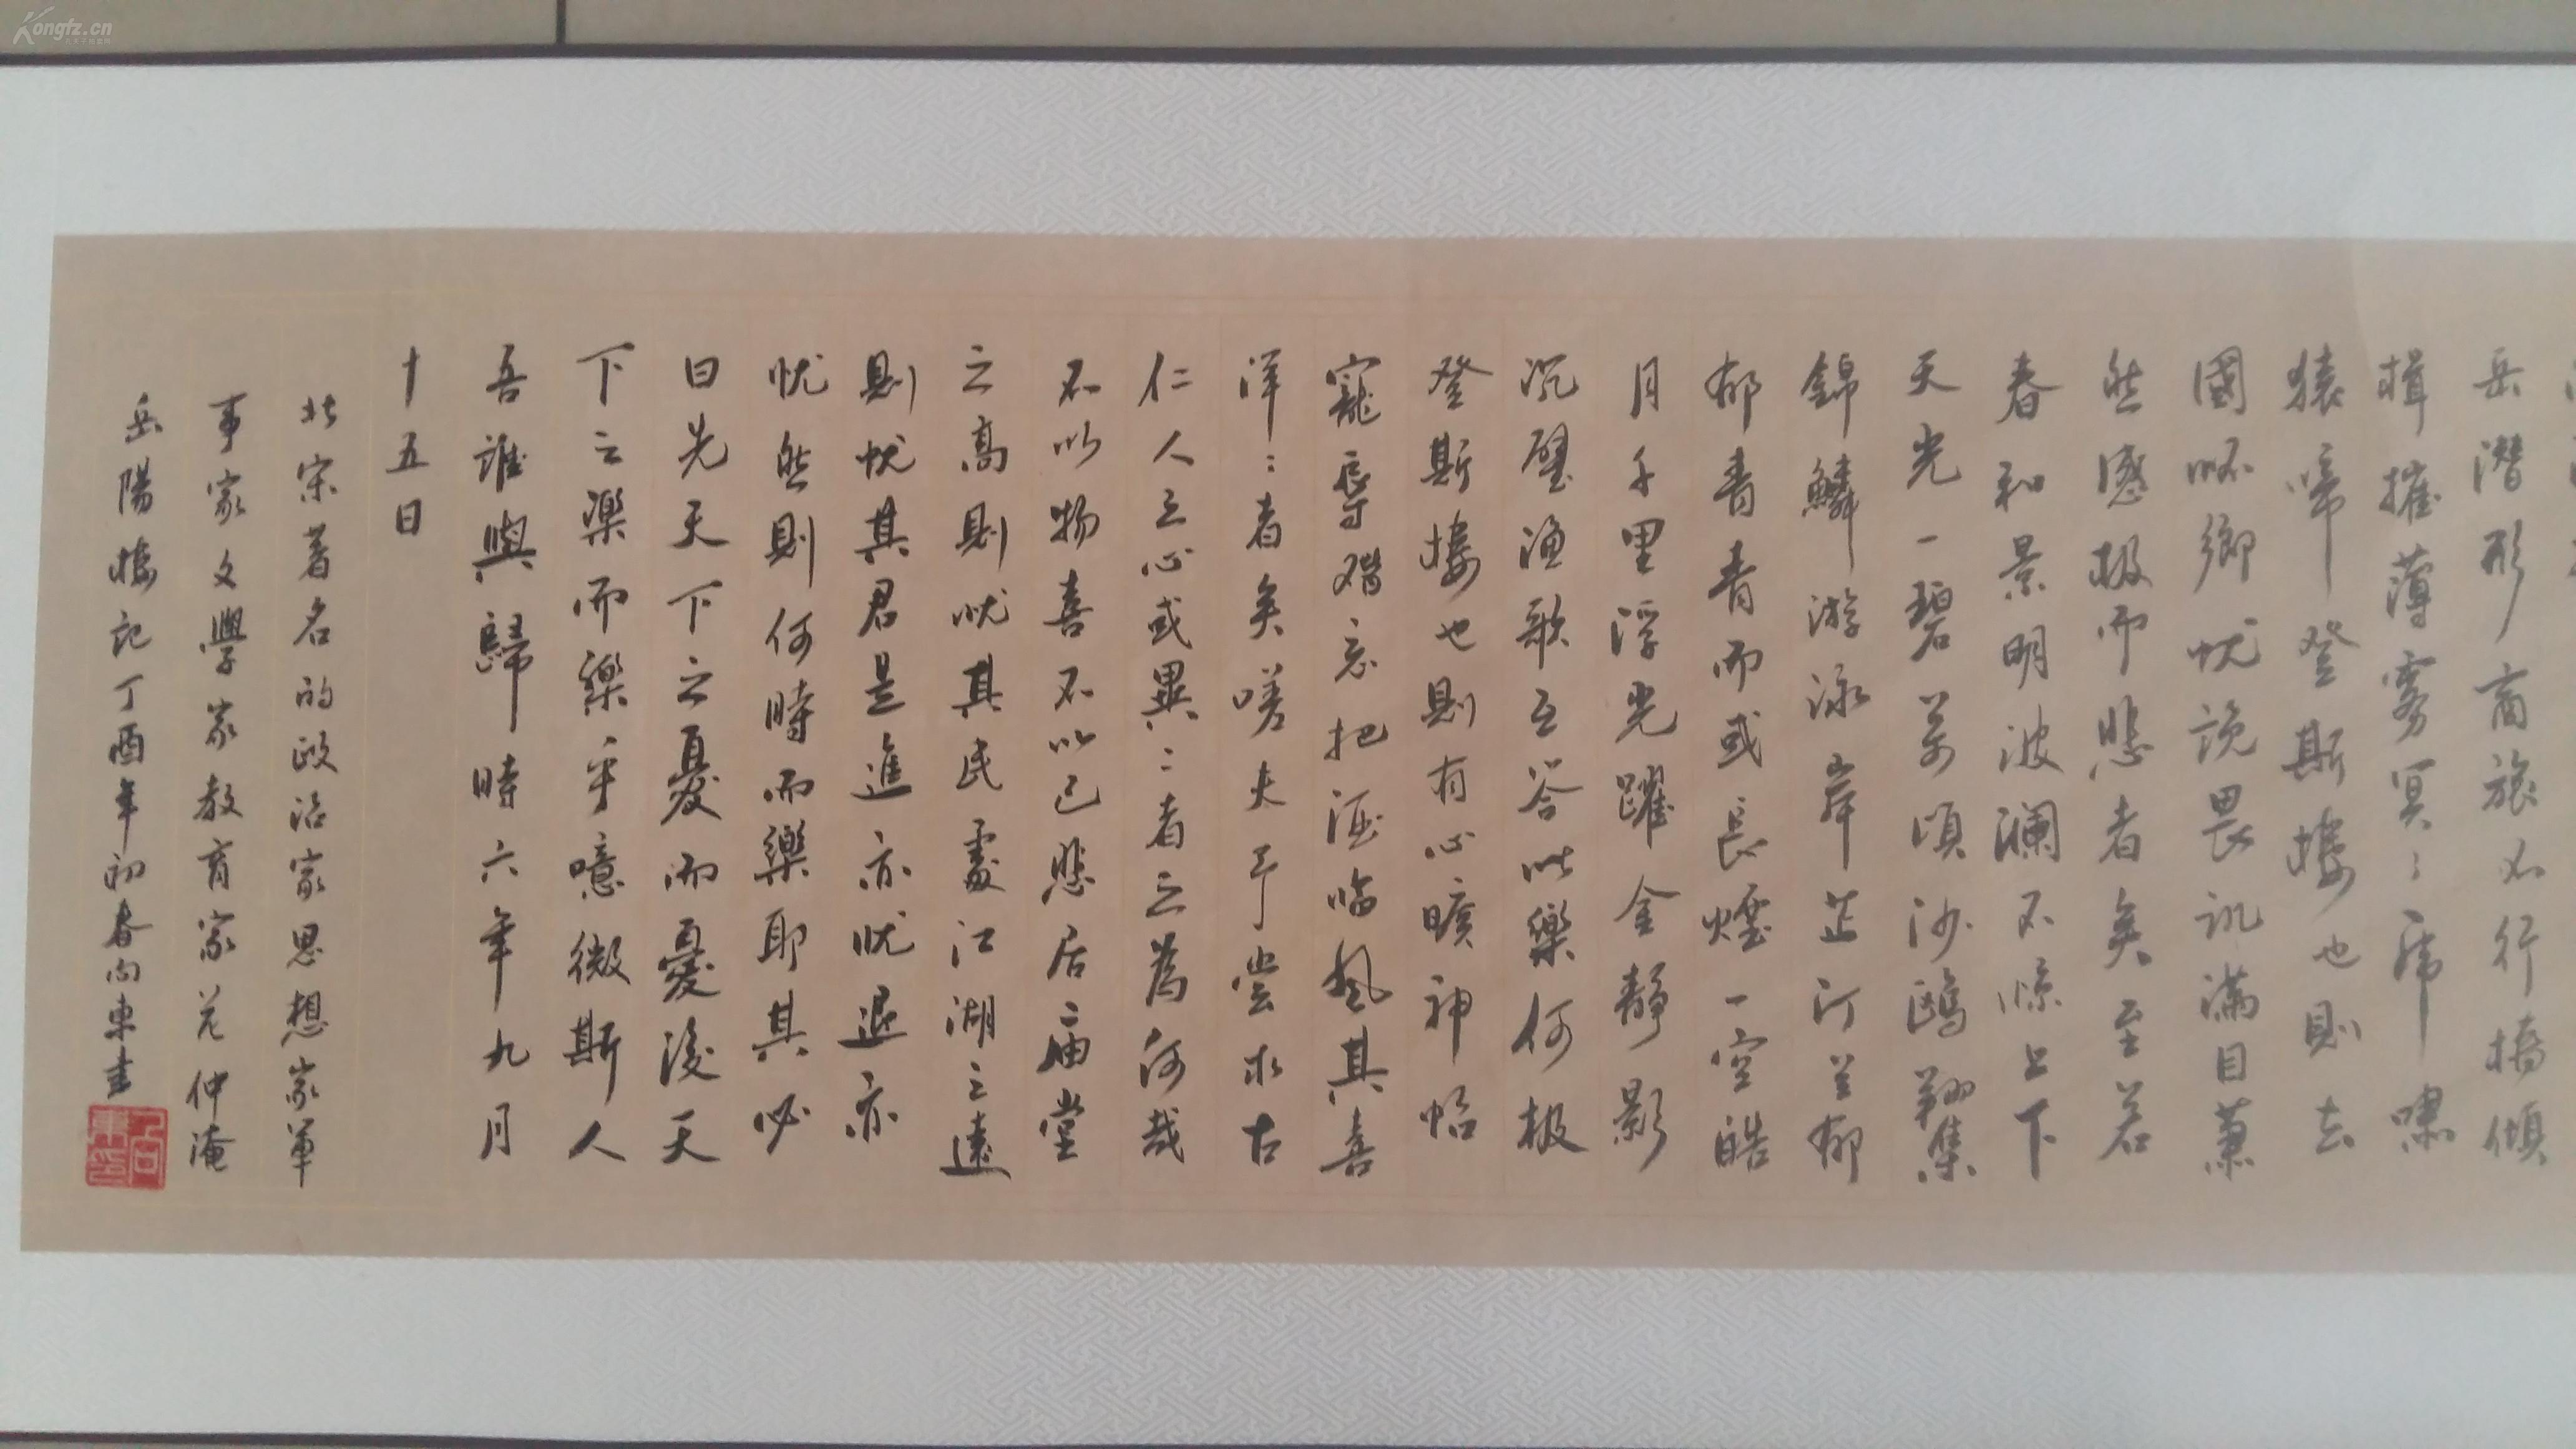 岳潛形商旅不行檣傾
楫摧薄雾冥〻虎嘯
猿啼登斯樓也則有去
國怀鄉忧讒畏讥滿目蕭
然感极而悲者矣至若
春和景明波澜不惊上下
天光一碧萬頃沙鷗翔集
錦鱗游泳岸芷汀兰郁
郁青青而或長煙一空皓
月千里浮光躍金靜影
沉璧渔歌互答此樂何极
登斯樓也則有心曠神怡
寵辱偕忘把酒临風其喜
洋:者矣嗟夫予尝求古
仁人之心或異:者之為何哉
不以物喜不以己悲居庙堂
之高則忧其民處江湖之遠
則忧其君是進亦忧退亦
忧然則何時而樂耶其必
曰先天下之憂而憂後天
下之樂而樂乎噫微斯人
吾誰與歸時六年九月
十五日
北宋著名的政治家思想家軍
事家文學家教育家范仲淹
岳陽樓記丁酉年初春向東書
向東印
Kongfz.cn